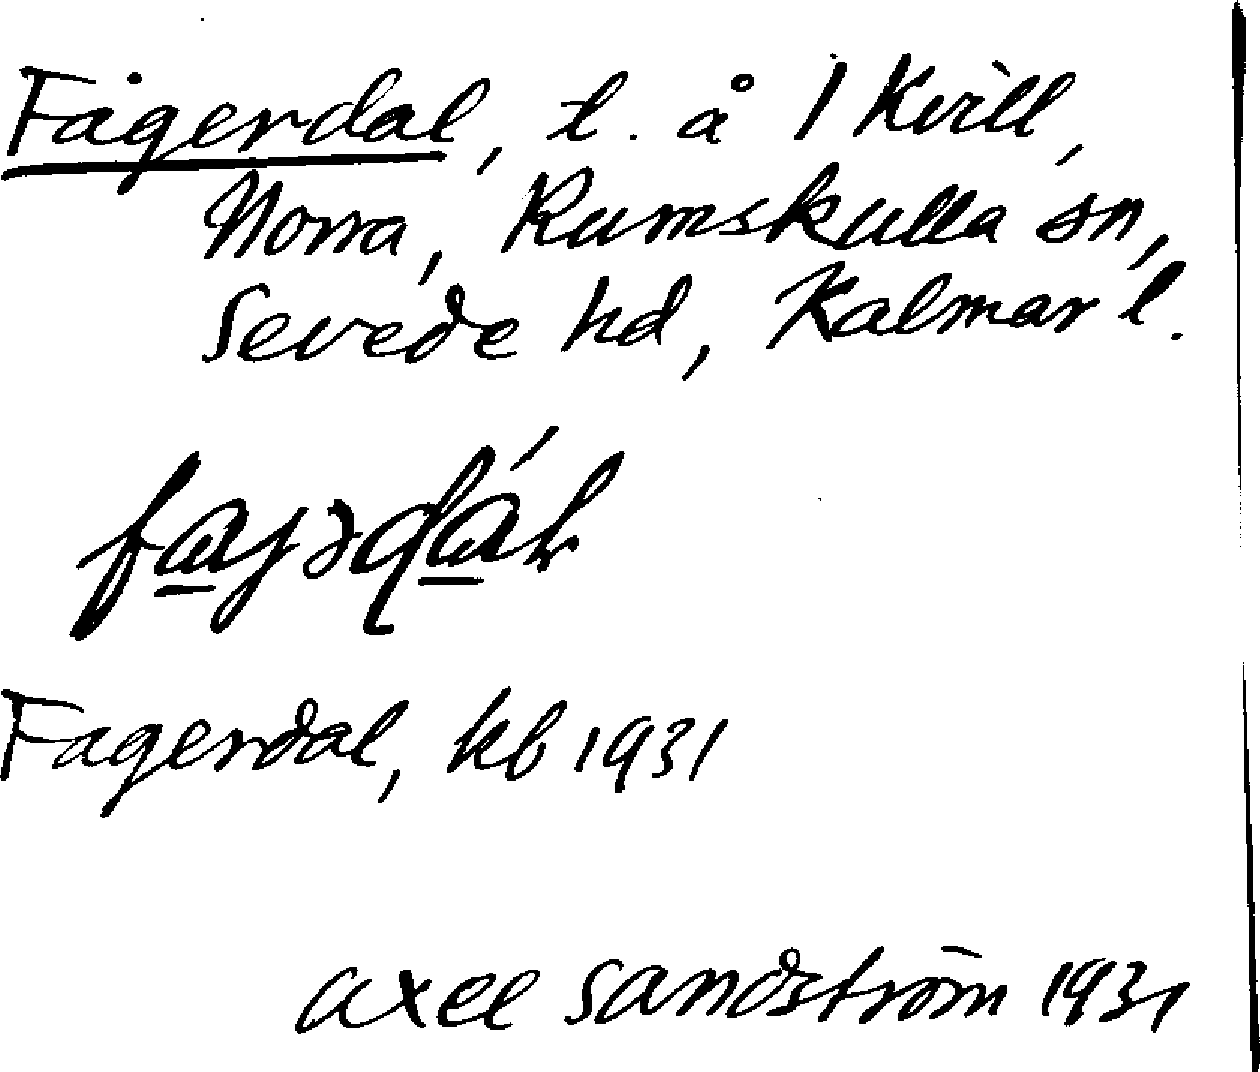 Fagerdal, t. å 1 Kvill,
Norra, Rumskulla sn,
Sevede hd, Kalmar l.
Fagerdal, kb 1931
Axel Sandström 1931